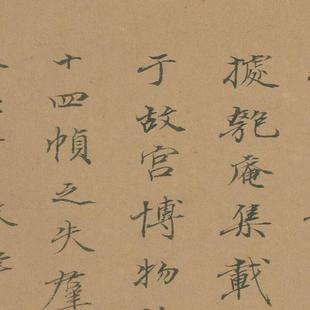 據匏庵集載
于故宮博物
十四幀之失群